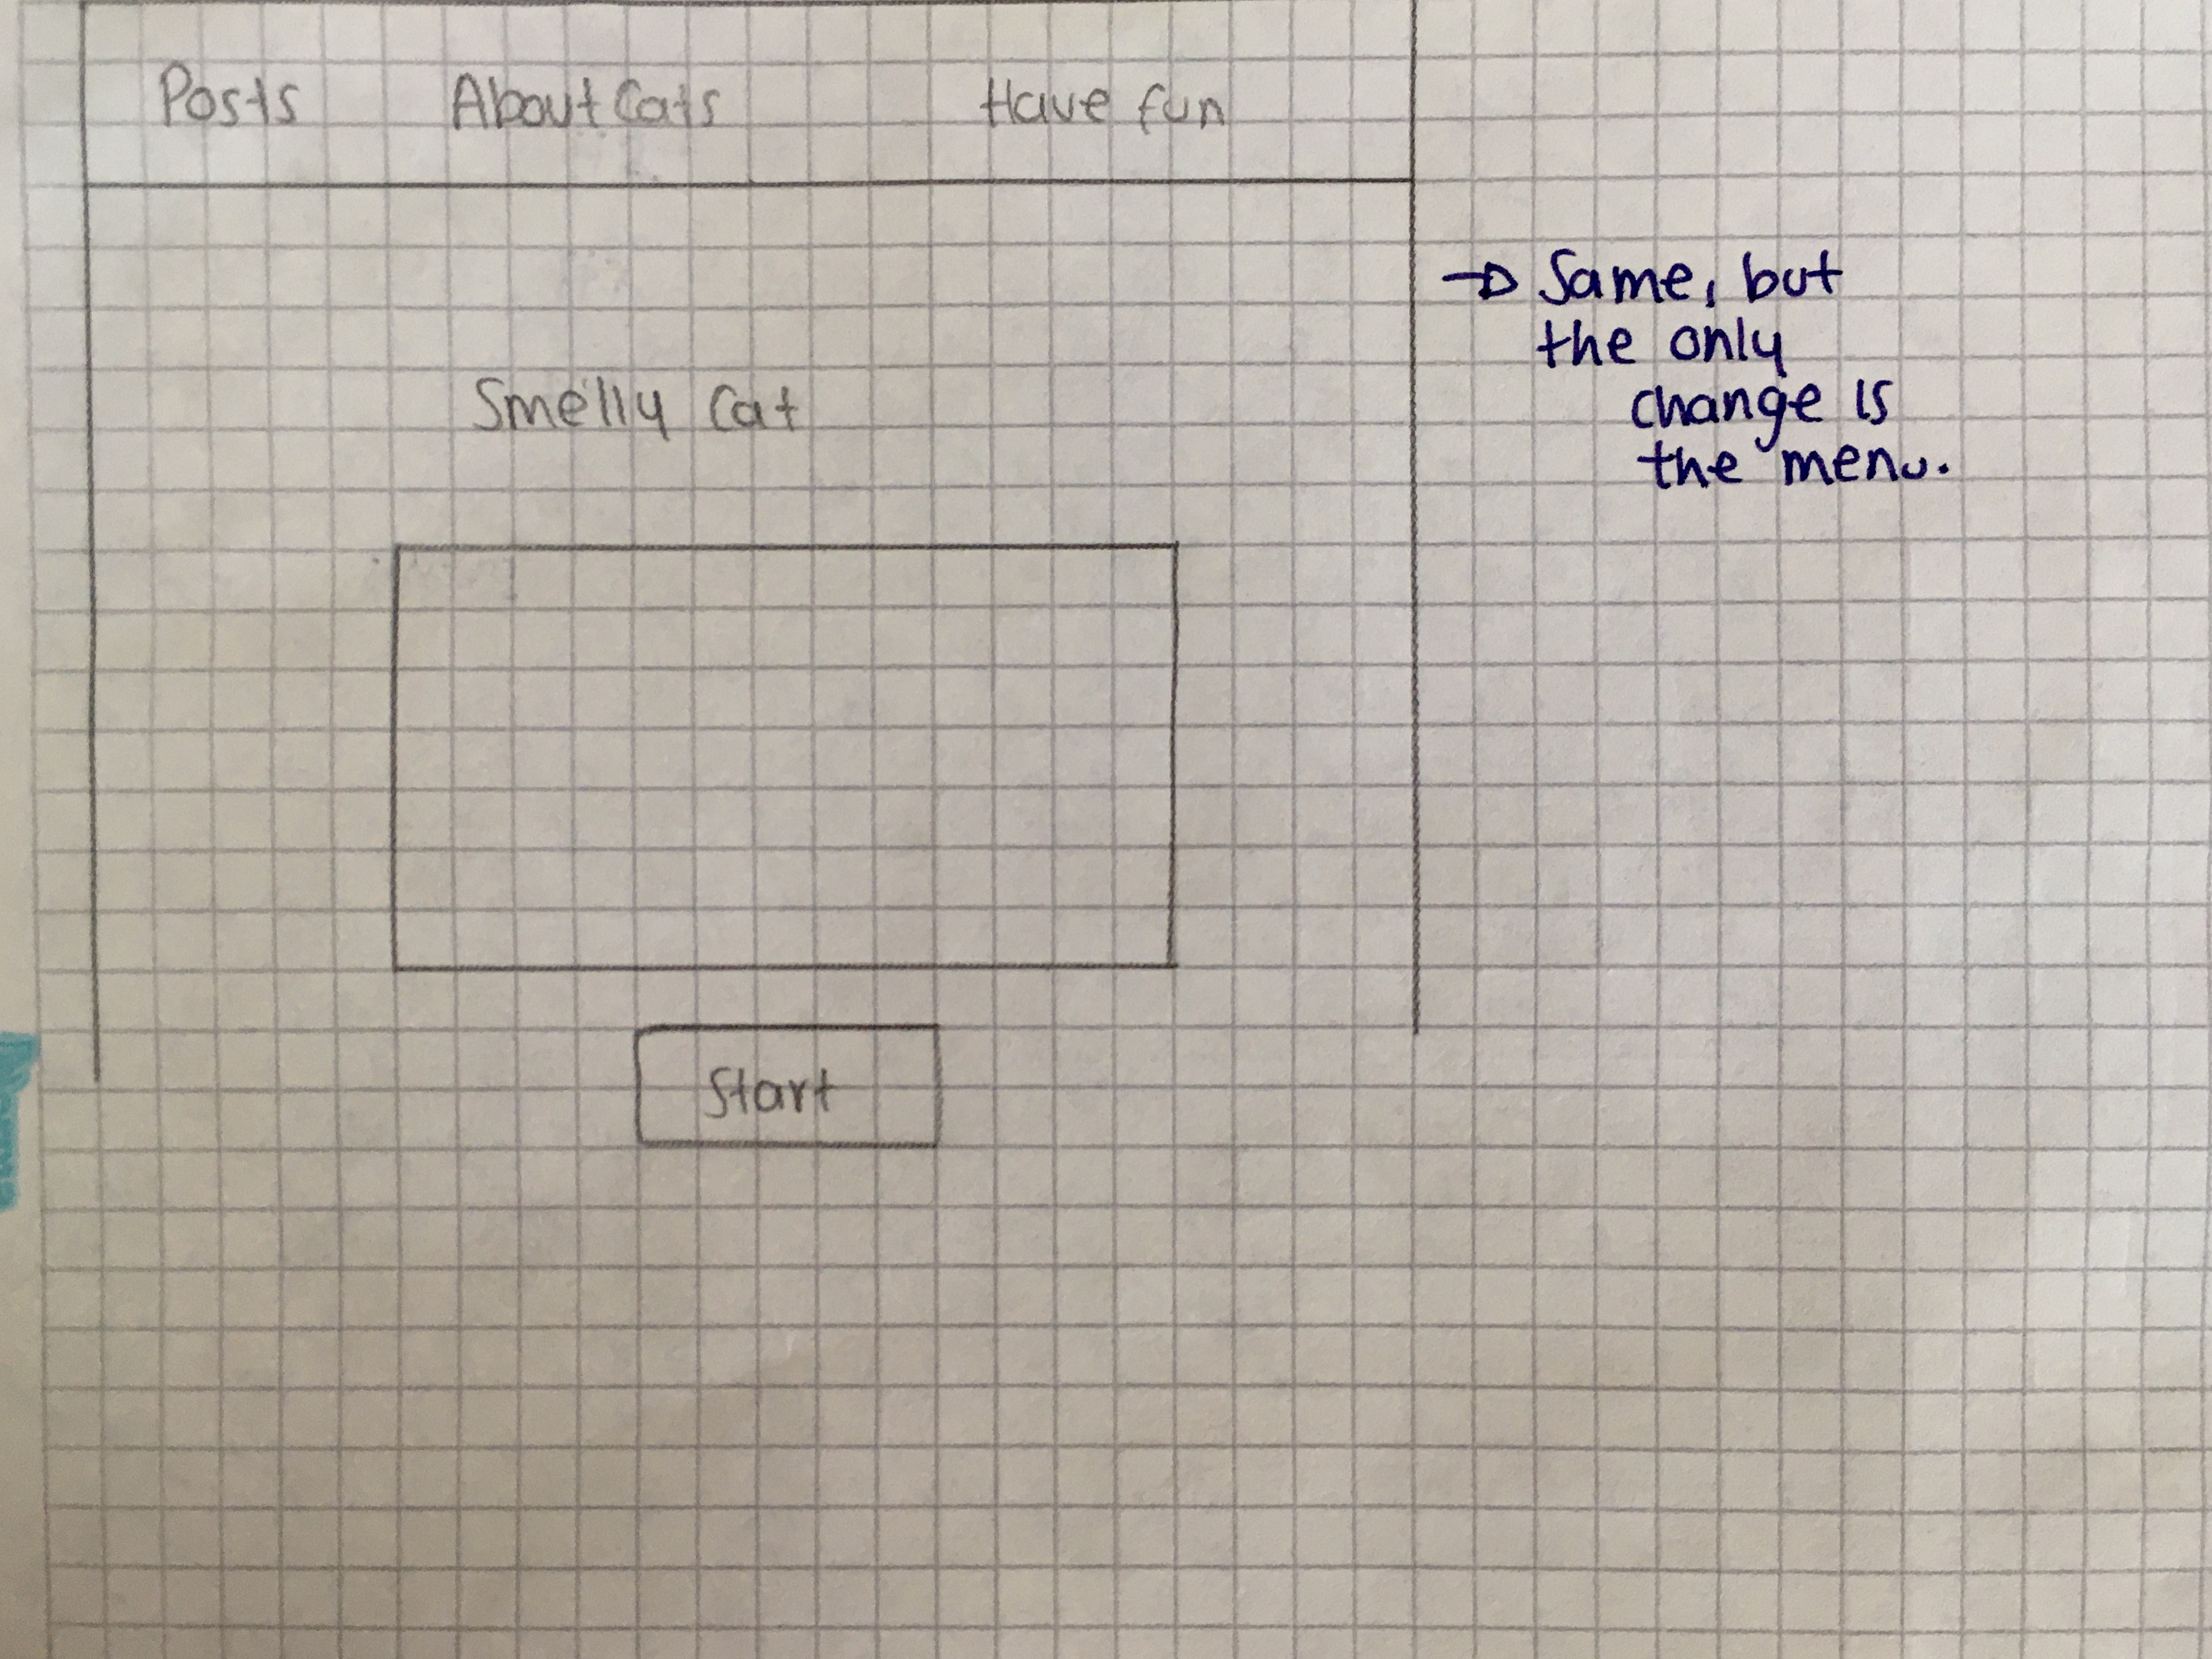 Posts About Cats Have fun
→ Same, but
the only
change is
the menu.
Smelly Cat
Start